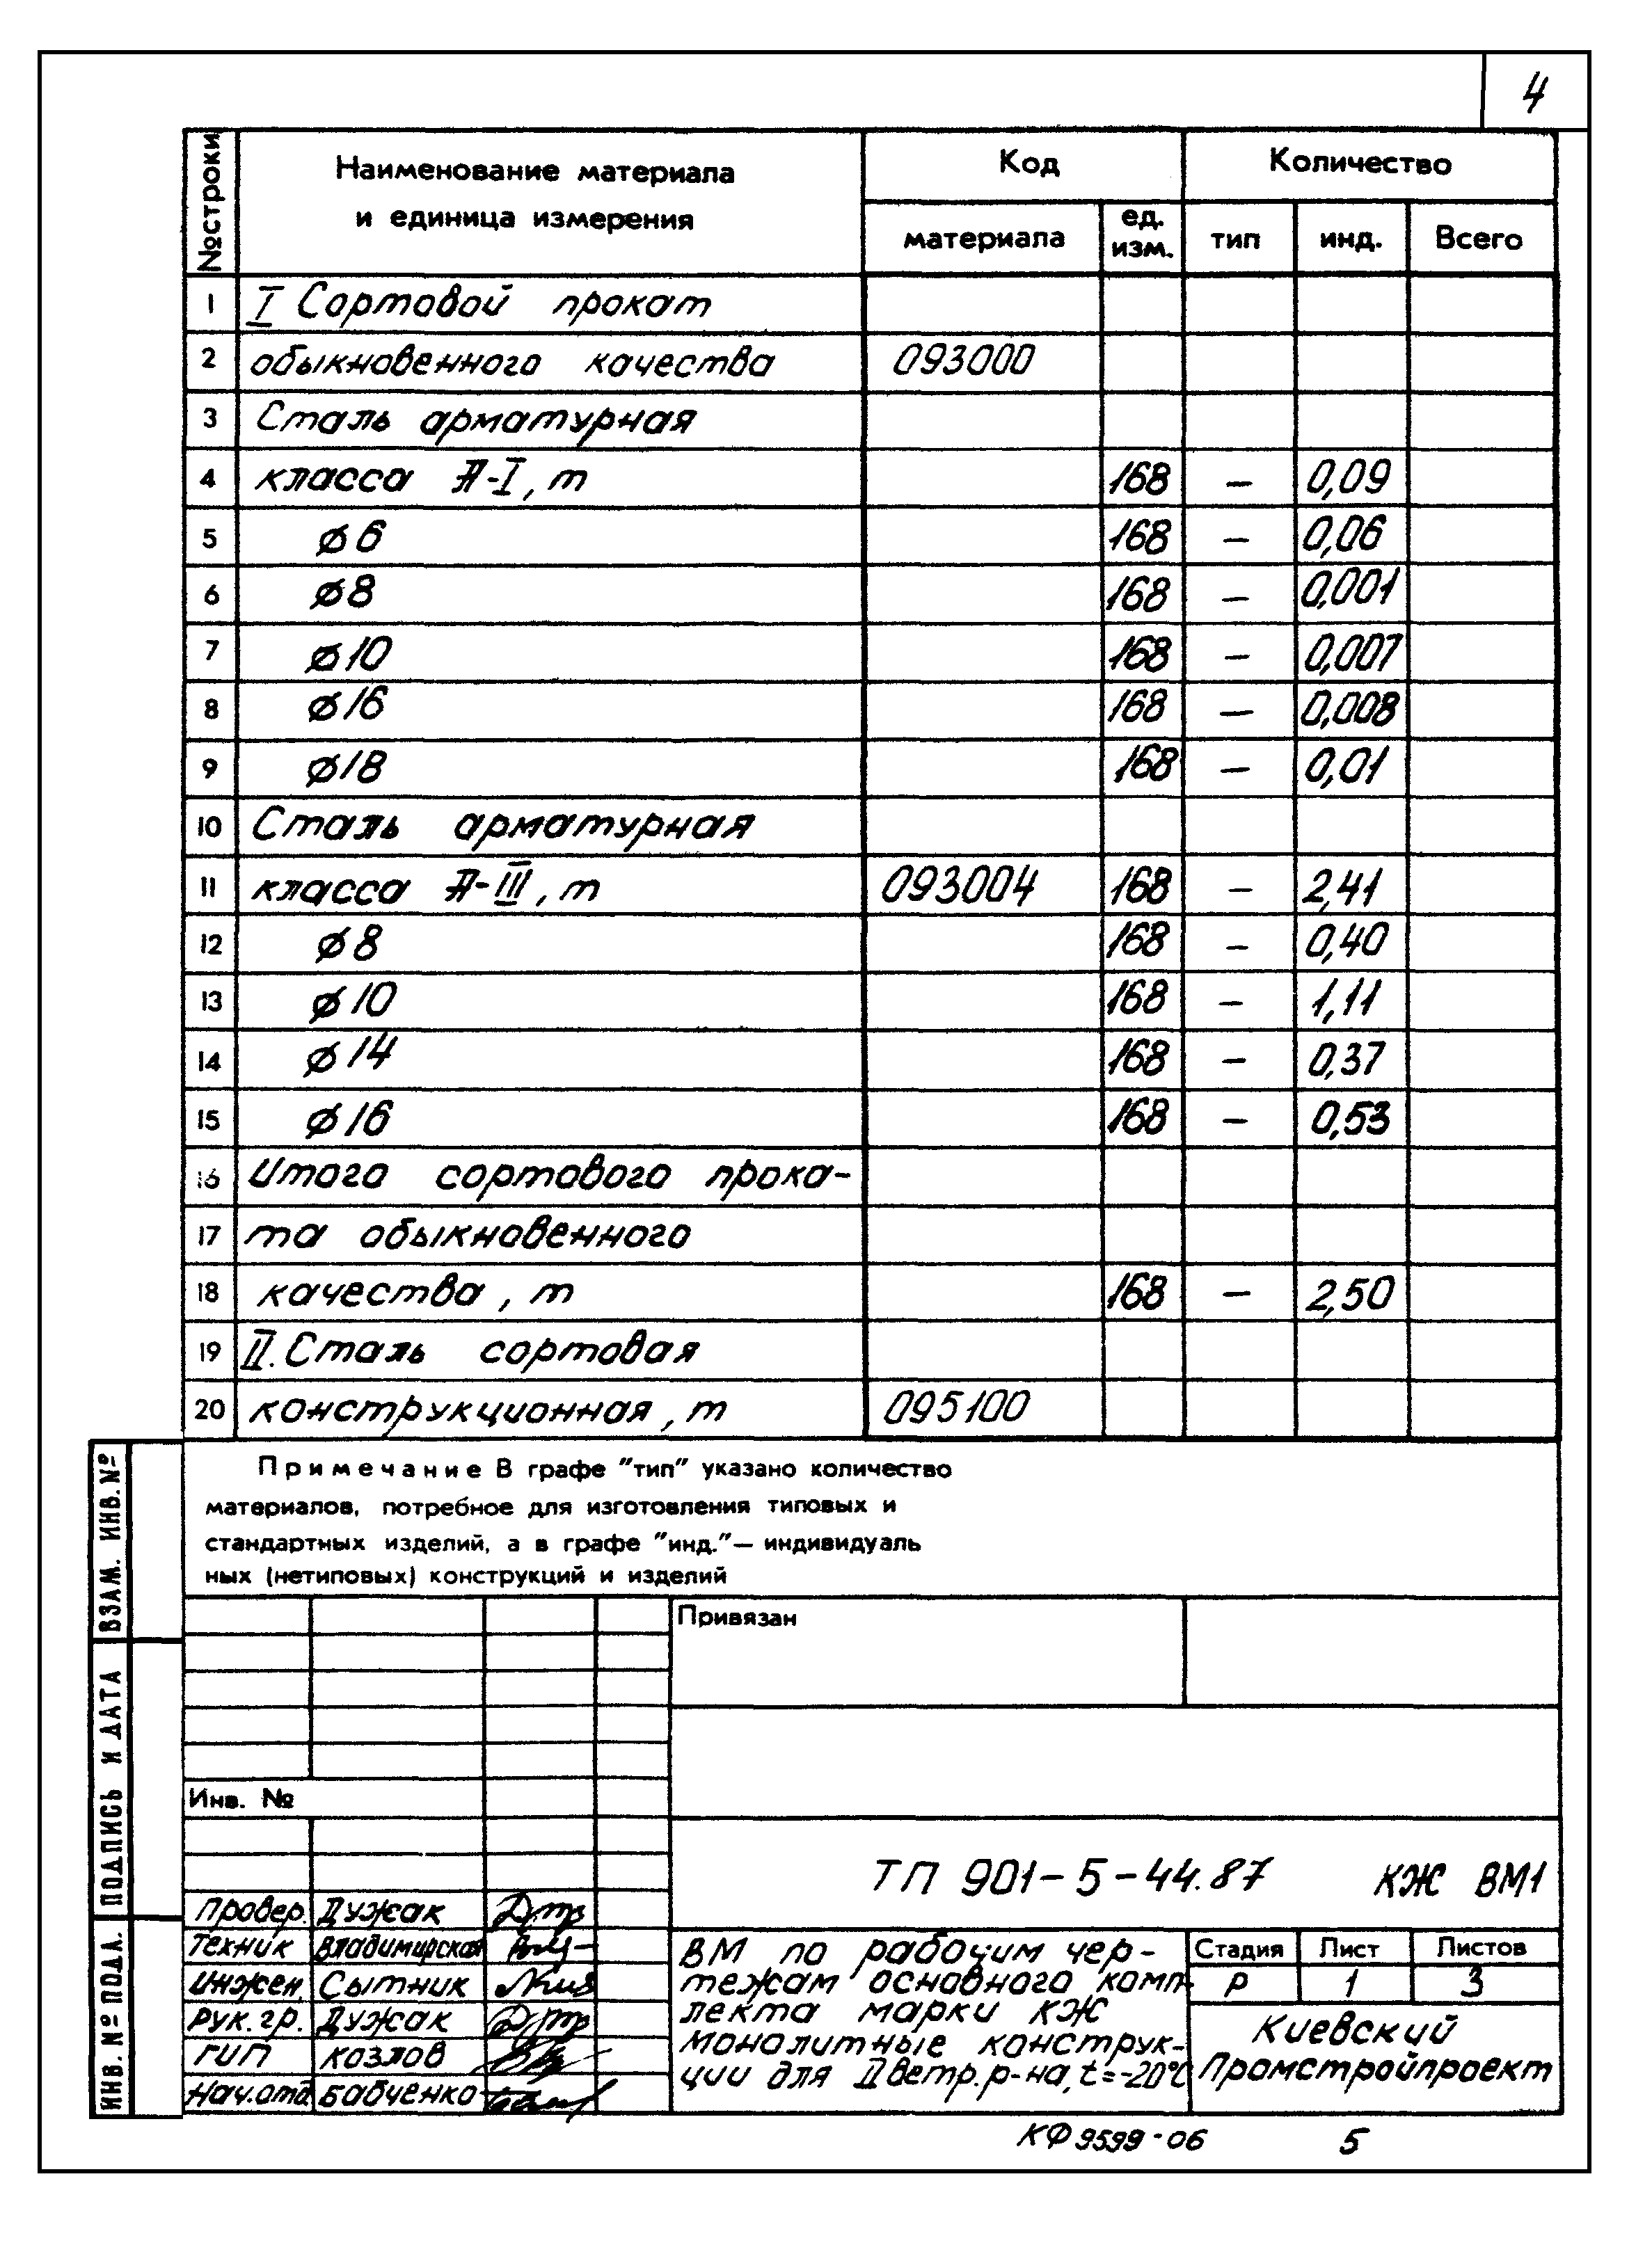 4
№ строки
Наименование материала
и единица измерения
Код
Количество
материала
ед.
изм.
тип
инд.
Всего
1 I Сортовой прокат
2 обыкновенного качества 093000
3 Сталь арматурная
4 класса А-I, т 168 – 0,09
5 ø6 168 – 0,06
6 ø8 168 – 0,001
7 ø10 168 – 0,007
8 ø16 168 – 0,008
9 ø18 168 – 0,01
10 Сталь арматурная
11 класса А-III, т 093004 168 – 2,41
12 ø8 168 – 0,40
13 ø10 168 – 1,11
14 ø14 168 – 0,37
15 ø16 168 – 0,53
16 Итого сортового прока-
17 та обыкновенного
18 качества, т 168 – 2,50
19 II. Сталь сортовая
20 конструкционная, т 095100
Примечание В графе "тип" указано количество
материалов, потребное для изготовления типовых и
стандартных изделий, а в графе "инд."— индивидуаль
ных (нетиповых) конструкций и изделий
ВЗАМ. ИНВ. №
ПОДПИСЬ И ДАТА
ИНВ. № ПОДЛ.
Привязан
Инв. №
ТП 901-5-44.87 КЖ ВМ1
Провер. Дужак
Техник Владимирская
Инжен. Сытник
Рук. гр. Дужак
ГИП Козлов
Нач. отд. Бабченко
ВМ по рабочим чер-
тежам основного комп-
лекта марки КЖ
монолитные конструк-
ции для II ветр. р-на, t=-20°С
Стадия Лист Листов
Р 1 3
Киевский
Промстройпроект
КФ 9599-06 5